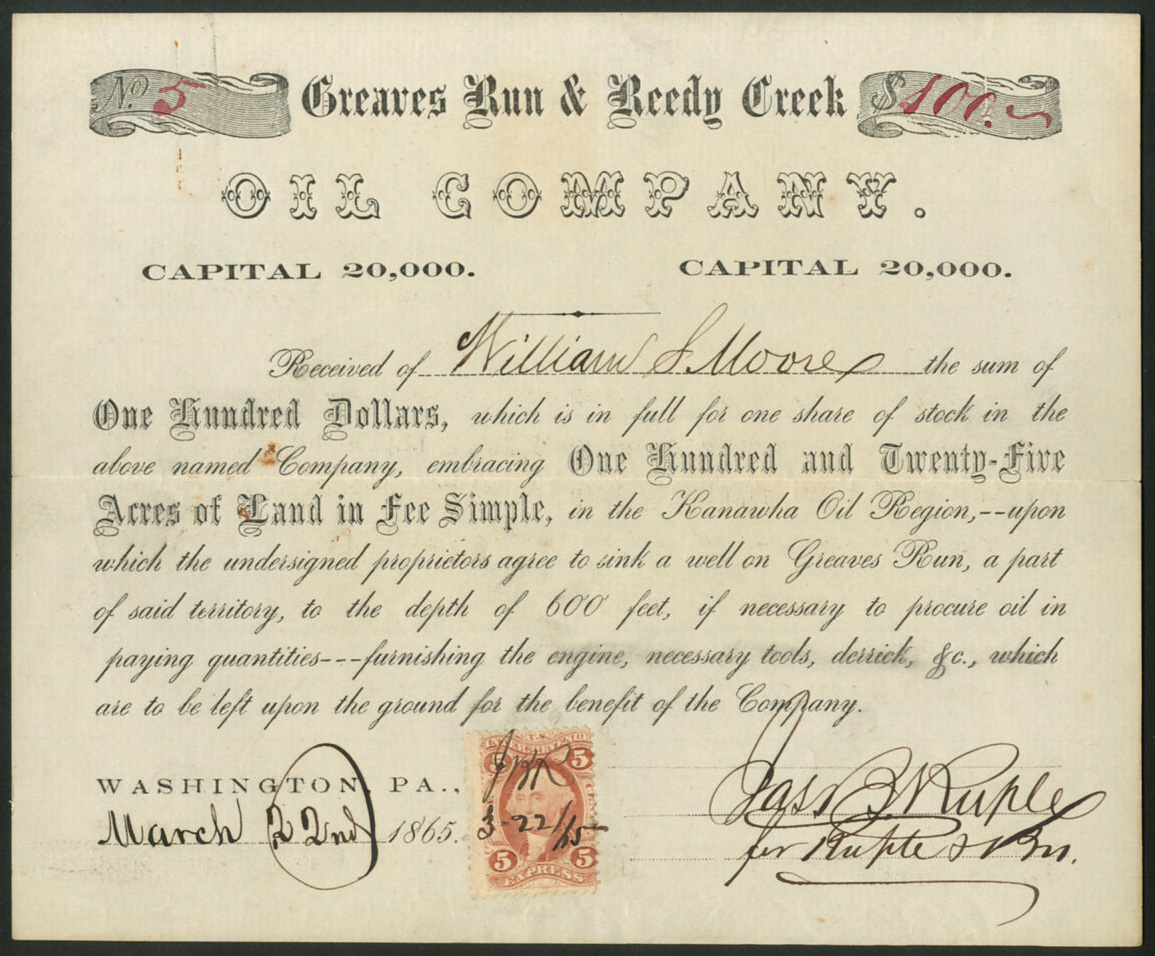 No. 5 Greaves Run & Reedy Creek $100.
OIL COMPANY.
CAPITAL 20,000. CAPITAL 20,000.
Received of William S. Moore the sum of
One Hundred Dollars, which is in full for one share of stock in the
above named Company, embracing One Hundred and Twenty-Five
Acres of Land in Fee Simple, in the Kanawha Oil Region,--upon
which the undersigned proprietors agree to sink a well on Greaves Run, a part
of said territory, to the depth of 600 feet, if necessary to procure oil in
paying quantities---furnishing the engine, necessary tools, derrick, &c., which
are to be left upon the ground for the benefit of the Company.
WASHINGTON, PA.,
March 22nd 1865.
U.S.
5 5
JBR
3-22/65
5 5
EXPRESS
Jas B. Ruple
for Ruple & Bro.